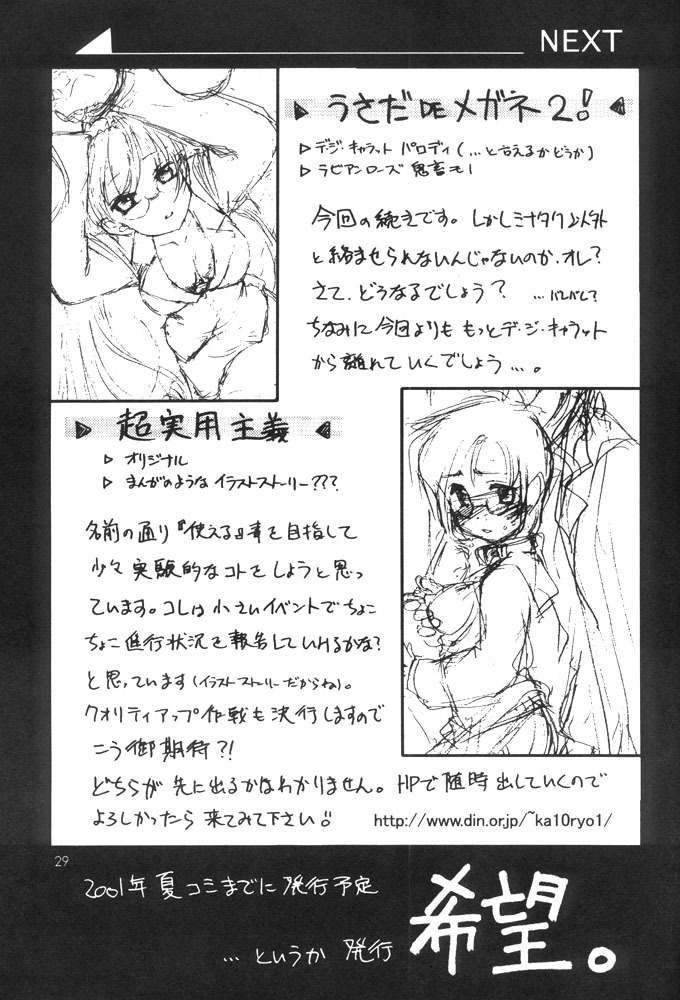 NEXT
うさだDEメガネ2!
▷デ・ジ・キャラット パロディ(…と言えるかどうか)
▷ラビアンローズ 鬼畜モノ
今回の続きです。しかしミナタク以外
と絡ませられないんじゃないのか、オレ?
さて、どうなるでしょう? …バレバレ?
ちなみに今回よりも もっとデ・ジ・キャラット
から離れていくでしょう…。
超実用主義
▷オリジナル
▷まんがのような イラストストーリー???
名前の通り『使える』本を目指して
少々実験的なコトをしようと思っ
ています。コレは小さいイベントでちょこ
ちょこ進行状況を報告していけるかな?
と思っています(イラストストーリーだからね)。
クオリティアップ作戦も決行しますので
こう御期待?!
どちらが先に出るかはわかりません。HPで随時出していくので
よろしかったら来てみて下さい!! http://www.din.or.jp/~ka10ryo1/
29
2001年夏コミまでに発行予定
…というか 発行 希望。